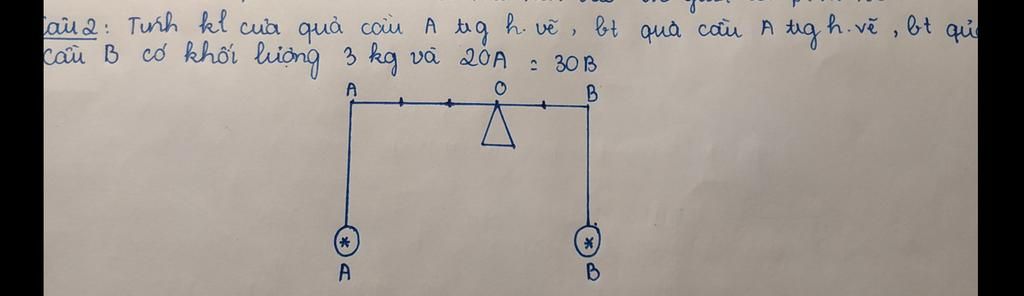 Câu 2: Tính kl của quả cầu A trg h.vẽ, bt quả cầu A trg h.vẽ, bt quả
cầu B có khối lượng 3 kg và 2OA = 3OB
A O B
A B